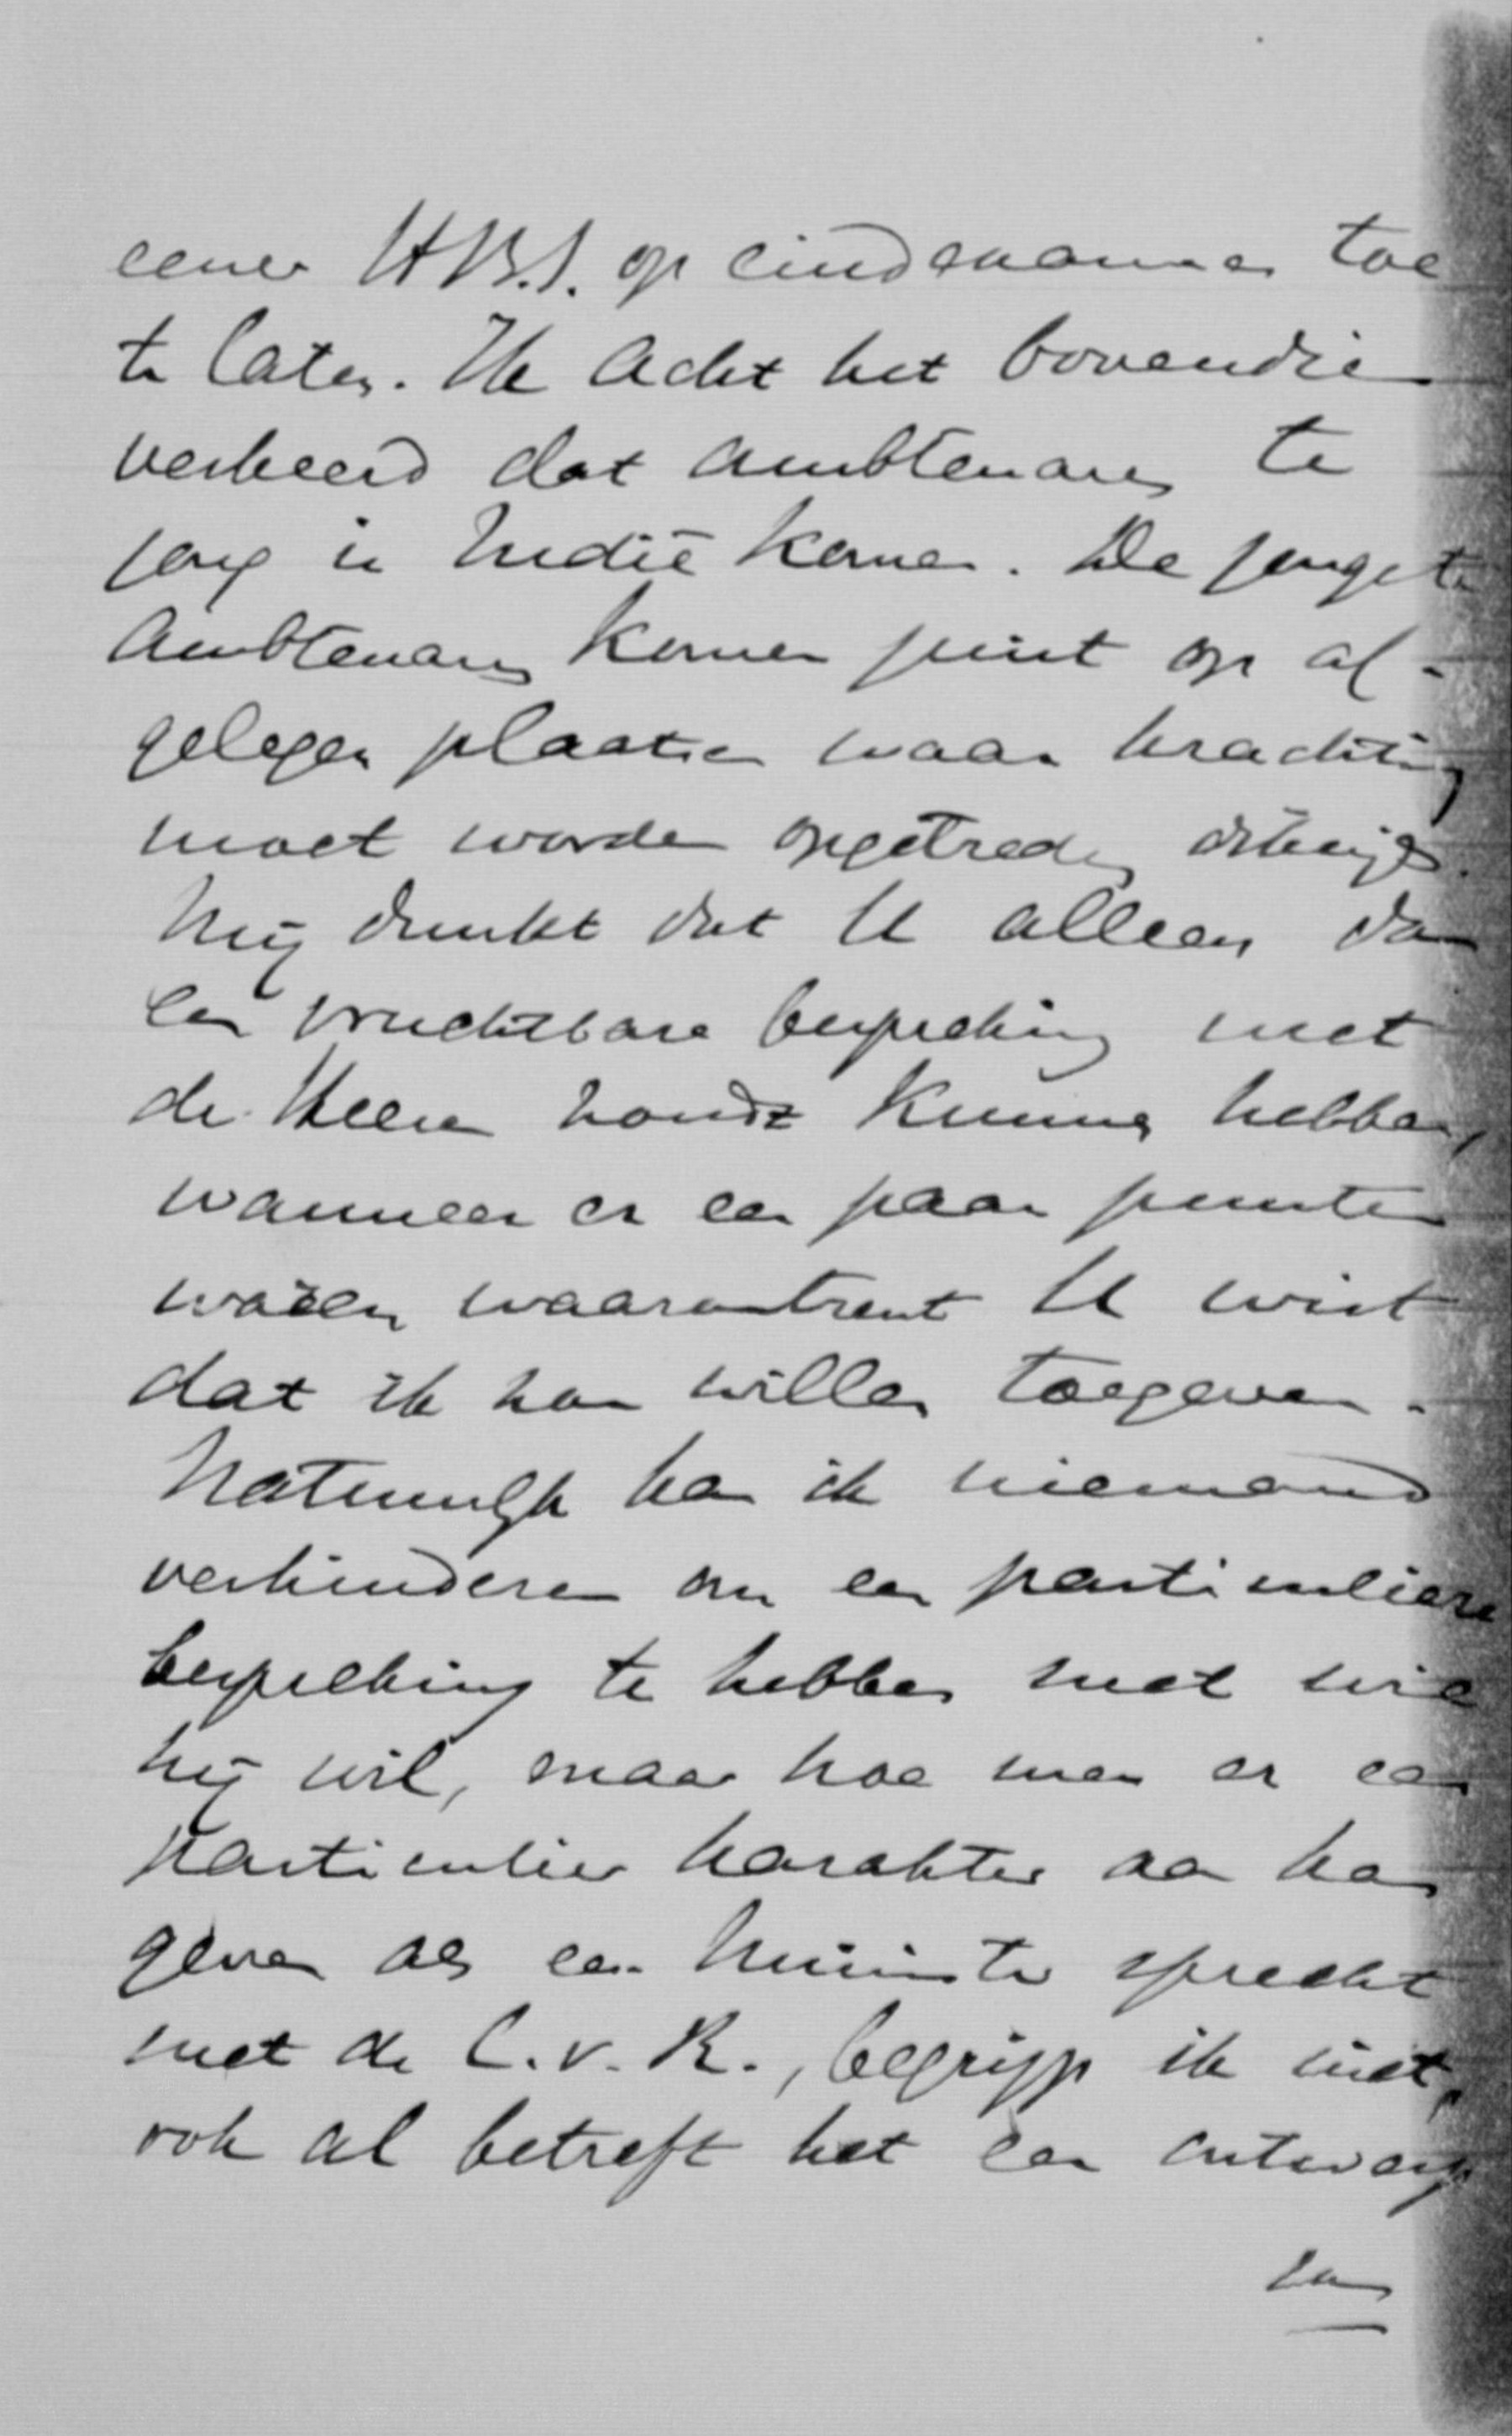 eener H.B.S. op eindexamen toe
te laten. Ik acht het bovendien
verkeerd dat ambtenaren te
jong in Indië komen. De jongste
ambtenaren komen juist op af-
gelegen plaatsen waar krachtig
moet worden opgetreden
Mij dunkt dat U alleen dan
een vruchtbare bespreking met
de Heeren zoudt kunnen hebben,
wanneer er een paar punten
waren waaromtrent U wist
dat ik zou willen toegeven.
Natuurlijk kan ik niemand
verhinderen om een particuliere
bespreking te hebben met wie
hij wil, maar hoe men er een
particulier karakter aan kan
geven als een Minister spreekt
met de C.v.R., begrijp ik niet,
ook al betreft het een ontwerp